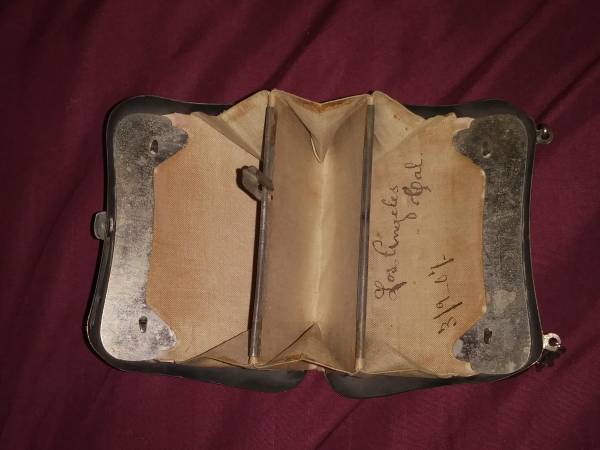 Los Angeles
Cal.
3/9-07.